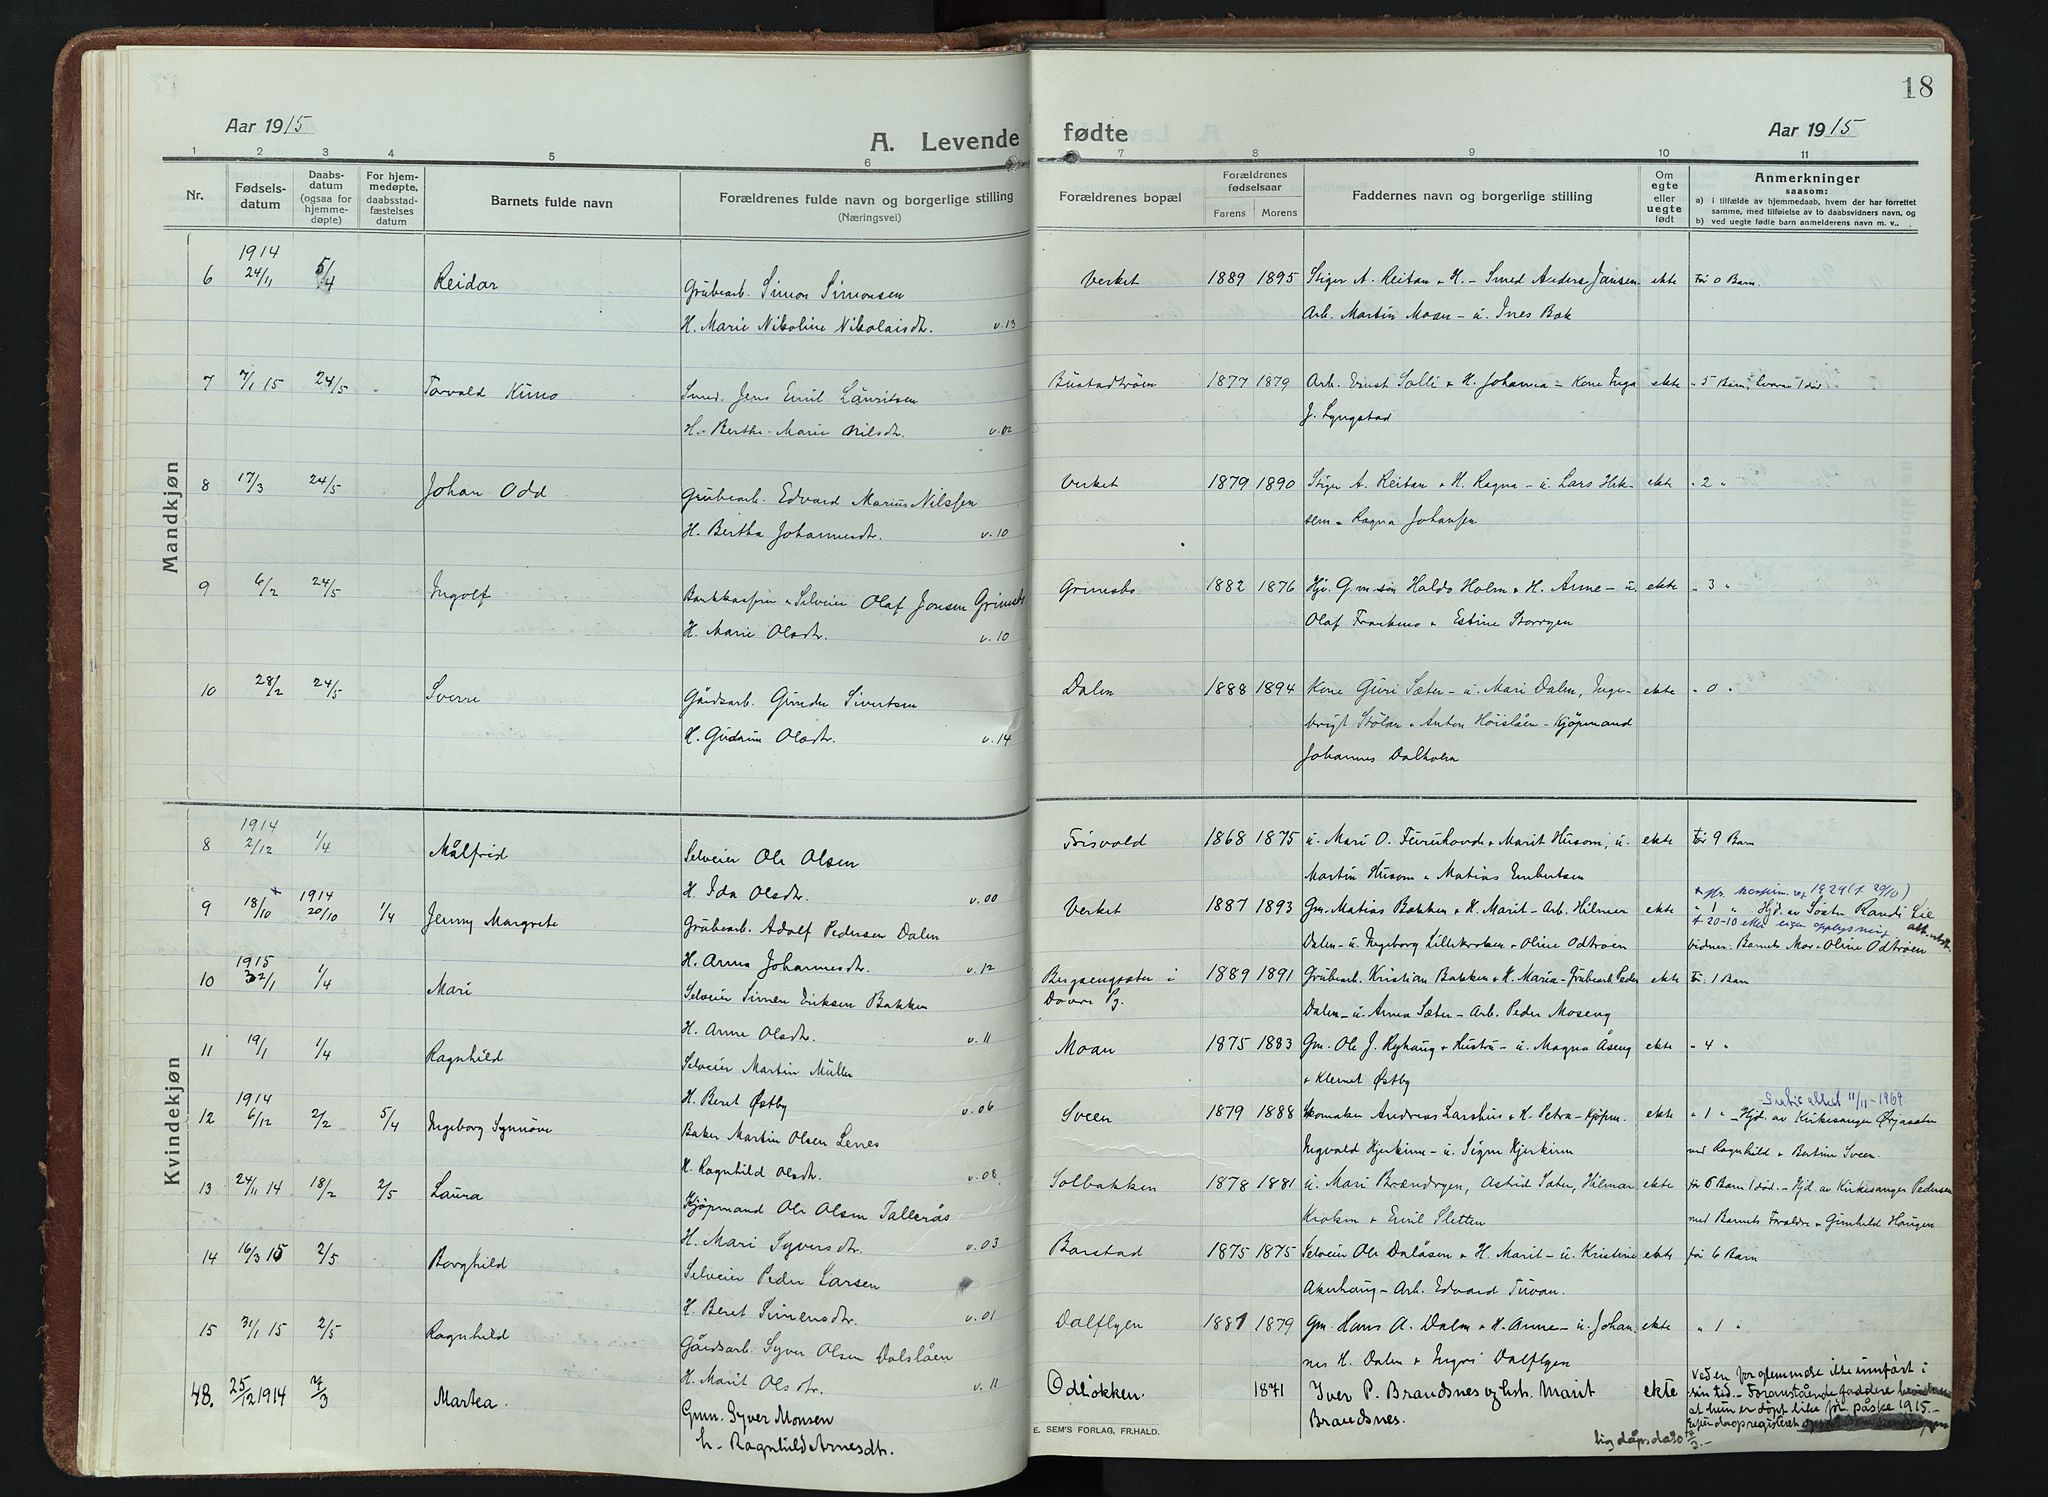 18
Aar 1915
A. Levende fødte
Aar 1915
1 2 3 4 5 6 7 8 9 10 11
Nr.
Fødsels-
datum
Daabs-
datum
(ogsaa for
hjemme-
døpte)
For hjem-
medøpte,
daabsstad-
fæstelses
datum
Barnets fulde navn
Forældrenes fulde navn og borgerlige stilling
(Næringsvei)
Forældrenes bopæl
Forældrenes
fødselsaar
Farens Morens
Faddernes navn og borgerlige stilling
Om
egte
eller
uegte
født
Anmerkninger
saasom:
a) i tilfælde av hjemmedaab, hvem der har forrettet
samme, med tilføielse av to daabsvidners navn, og
b) ved uegte fødte barn anmelderens navn m. v..
Mandkjøn
1914
6 24/11 5/4 Reidar Grubearb. Simon Simonsen Verket 1889 1895 Stiger A. Reitan + H. – Smed Anders Jansen ekte Før 0 Barn.
H. Marie Nikoline Nikolaisdtr. v. 13 Arb. Martin Moan – u. Ines Bak
7 7/1 15 24/5 Torvald Kuno Smed. Jens Emil Lauritsen Bustadtrøen 1877 1879 Arb. Ernst Solli + H. Johanna – Kone Inga ekte " 5 Barn, hvorav 1 død
H. Berthe Marie Nilsdtr. v. 02 J. Lyngstad
8 17/3 24/5 Johan Odd Grubearb. Edvard Marius Nilssen Verket 1879 1890 Stiger A. Reitan + H. Ragna – u. Lars ekte " 2 "
H. Bertha Johannesdtr. v. 10 Ragna Johansen
9 6/2 24/5 Ingolf Selveier Olaf Jonsen Grimsbo Grimsbo 1882 1876 Haldo Holm + H. Anne – u. ekte " 3 "
H. Marie Olsdtr. v. 10 Olaf + Estine Storryen
10 28/2 24/5 Sverre Gårdsarb. Gunder Sivertsen Dalen 1888 1894 Kone Guri Sæter – u. Mari Dalen, Inge- ekte " 0 "
H. Gudrun Olsdtr. v. 14 brigt Stølan + Anton Høislåen – Kjøpmand
Johannes Dalholm
Kvindekjøn
1914
8 2/12 1/4 Målfrid Selveier Ole Olsen Frisvold 1868 1875 u. Mari O. Furuhovde + Marit Husom, u. ekte Før 9 Barn
H. Ida Olsdtr. v. 00 Martin Husom + Matias Embertsen
9 18/10 1914 20/10 1/4 Jenny Margrete Grubearb. Adolf Pedersen Dalen Verket 1887 1893 Gm. Matias Bakken + H. Marit – Arb. Hilmer ekte " 1 " Hjd. av Søster Randi Lie
H. Anna Johannesdtr. v. 12 Dalen – u. Ingeborg Lillekroken + Oline Odtrøen vidner: Barnets Mor + Oline Odtrøen
1915
10 1/4 Mari Selveier Simen Eriksen Bakken i Dovre Pg. 1889 1891 Grubearb. Kristian Bakken + H. Maria – Grubearb. Peder ekte Før 1 Barn
H. Anne Olsdtr. v. 11 Dalen – u. Anna Sæter – Arb. Peder Moseng
11 19/1 1/4 Ragnhild Selveier Martin Müller Moan 1875 1883 Gm. Ole J. Ryhaug + Hustru – u. Magna Åseng ekte " 4 "
H. Beret Østby v. 06 + Klemet Østby
1914
12 6/12 2/2 5/4 Ingeborg Synnøve Baker Martin Olsen Lenes Sveen 1879 1888 Skomaker Andreas Larshus + H. Petra – Kjøpm. ekte " 1 " – Hjd. av Kirkesanger
H. Ragnhild Olsdtr. v. 08 Ingvald Hjerkinn – u. Signe Hjerkinn med Ragnhild + Bertine Sveen.
13 24/11 14 18/2 2/5 Laura Kjøpmand Ole Olsen Tallerås Solbakken 1878 1881 u. Mari Brændryen, Astrid Sæter, Hilmar ekte før 6 Barn 1 død. – Hjd. av Kirkesanger Pedersen
H. Mari Syversdtr. v. 03 Kroken + Emil Sletten med Barnets Forældre + Gunhild Haugen
14 16/3 15 2/5 Borghild Selveier Peder Larsen Barstad 1875 1875 Selveier Ole Dalåsen + H. Marit – u. Kristine ekte før 6 Barn
H. Beret Simensdtr. v. 01 Arb. Edvard
15 31/1 15 2/5 Ragnhild Gårdsarb. Syver Olsen Dalslåen Dalflyen 1881 1879 Gm. Hans A. Dalen + H. Anne – u. Johan- ekte " 1 "
H. Marit Olsdtr. v. 11 nes H. Dalen + Ingri Dalflyen
48. 25/12 1914 7/3 Martea. Gmn. Syver Monsen Odløkken 1871 Iver P. Brandsnes og hstr. Marit ekte Ved en forglemmelse ikke innført i
h. Ragnhild Arnesdtr. Brandsnes. sin tid. – Foranstående faddere
at hun er døpt like før påske 1915. –
E. SEM'S FORLAG, FR.HALD.